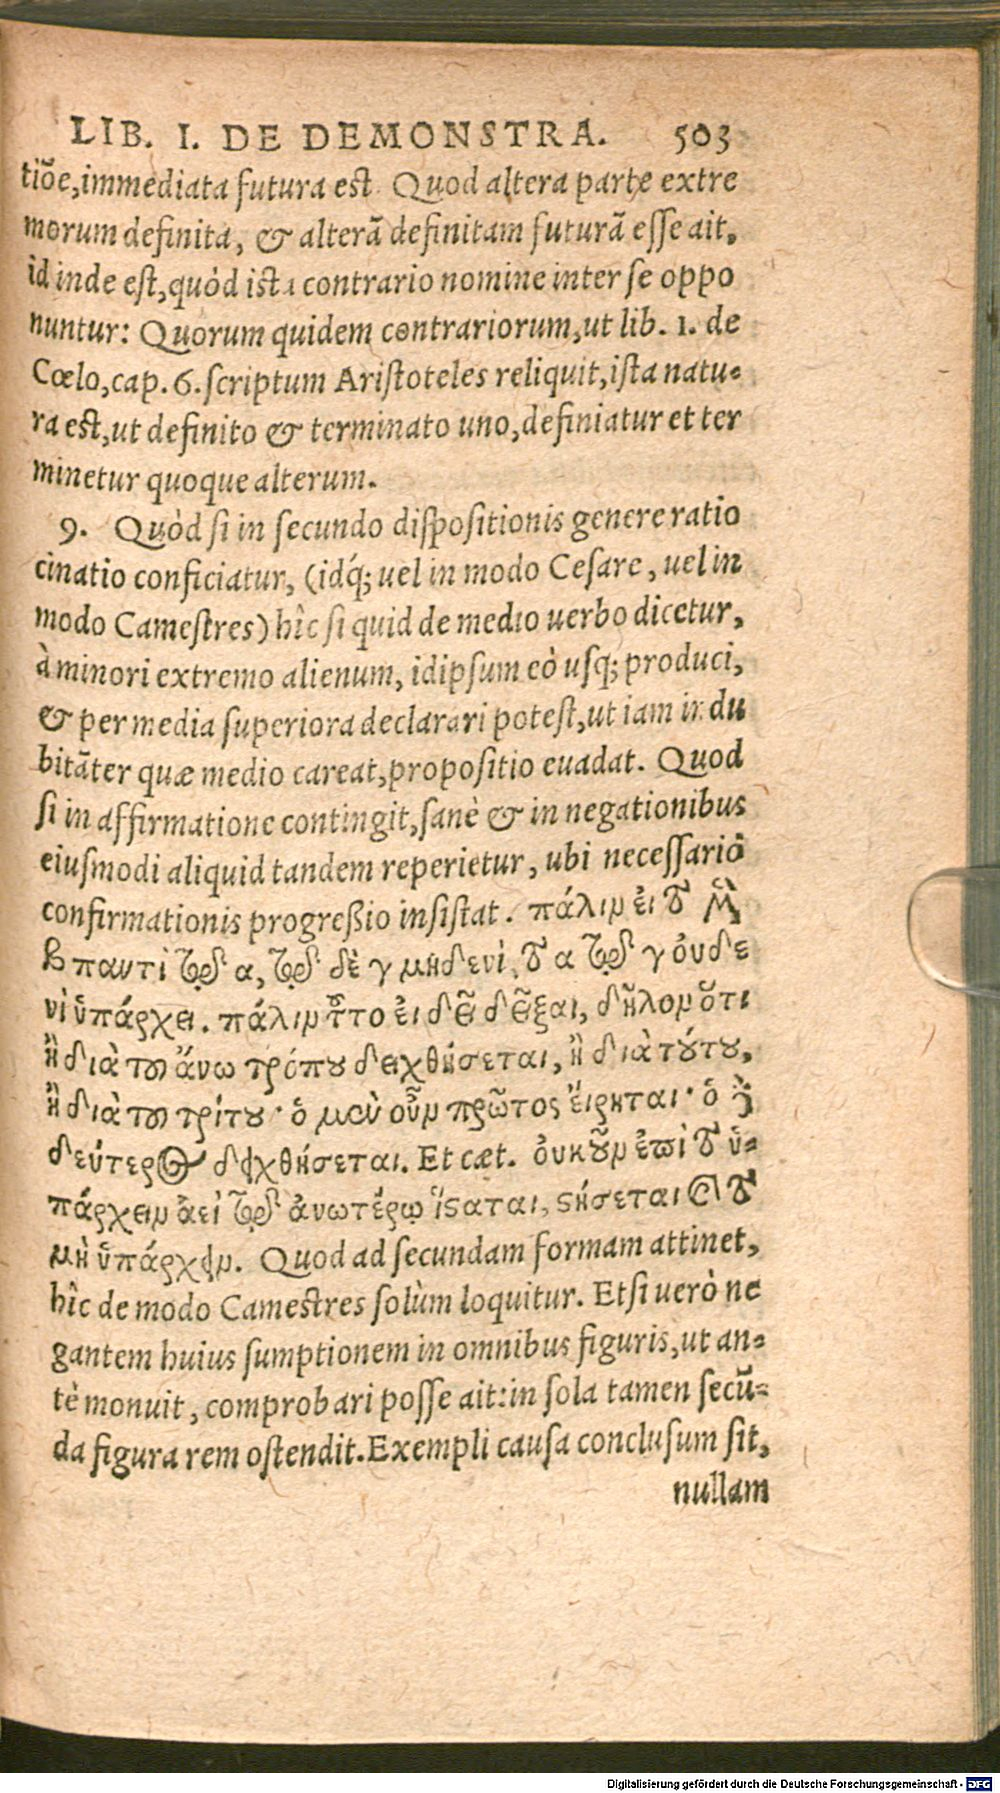 LIB. I. DE DEMONSTRA. 503
tiõe, immediata futura est. Quod altera parte extre
morum definita, & alterã definitam futurã esse ait,
id inde est, quòd ista contrario nomine inter se oppo
nuntur: Quorum quidem contrariorum, ut lib. 1. de
Cœlo, cap. 6. scriptum Aristoteles reliquit, ista natu-
ra est, ut definito & terminato uno, definiatur et ter
minetur quoque alterum.
9. Quòd si in secundo dispositionis genere ratio
cinatio conficiatur, (idq́; uel in modo Cesare, uel in
modo Camestres) hîc si quid de medio uerbo dicetur,
à minori extremo alienum, idipsum eò usq; produci,
& per media superiora declarari potest, ut iam indu
bitãter quæ medio careat, propositio euadat. Quod
si in affirmatione contingit, sanè & in negationibus
eiusmodi aliquid tandem reperietur, ubi necessariò
confirmationis progreßio insistat. πάλιν εἰ τὸ μὲν
β παντὶ τῷ α, τῷ δὲ γ μηδενὶ, τὸ α τῷ γ οὐδε
νὶ ὑπάρχει. πάλιν τοῦτο εἰ δεῖ δεῖξαι, δῆλον ὅτι
ἢ διὰ τοῦ ἄνω τρόπου δειχθήσεται, ἢ διὰ τούτου,
ἢ διὰ τοῦ τρίτου· ὁ μὲν οὖν πρῶτος εἴρηται· ὁ δὲ
δεύτερος δειχθήσεται. Et cæt. οὐκοῦν ἐπὶ τοῦ ὑ-
πάρχειν ἀεὶ τῷ ἀνωτέρῳ ἵσταται, στήσεται καὶ τοῦ
μὴ ὑπάρχειν. Quod ad secundam formam attinet,
hîc de modo Camestres solùm loquitur. Etsi uerò ne
gantem huius sumptionem in omnibus figuris, ut an-
tè monuit, comprobari posse ait: in sola tamen secũ-
da figura rem ostendit. Exempli causa conclusum sit,
nullam
Digitalisierung gefördert durch die Deutsche Forschungsgemeinschaft - DFG